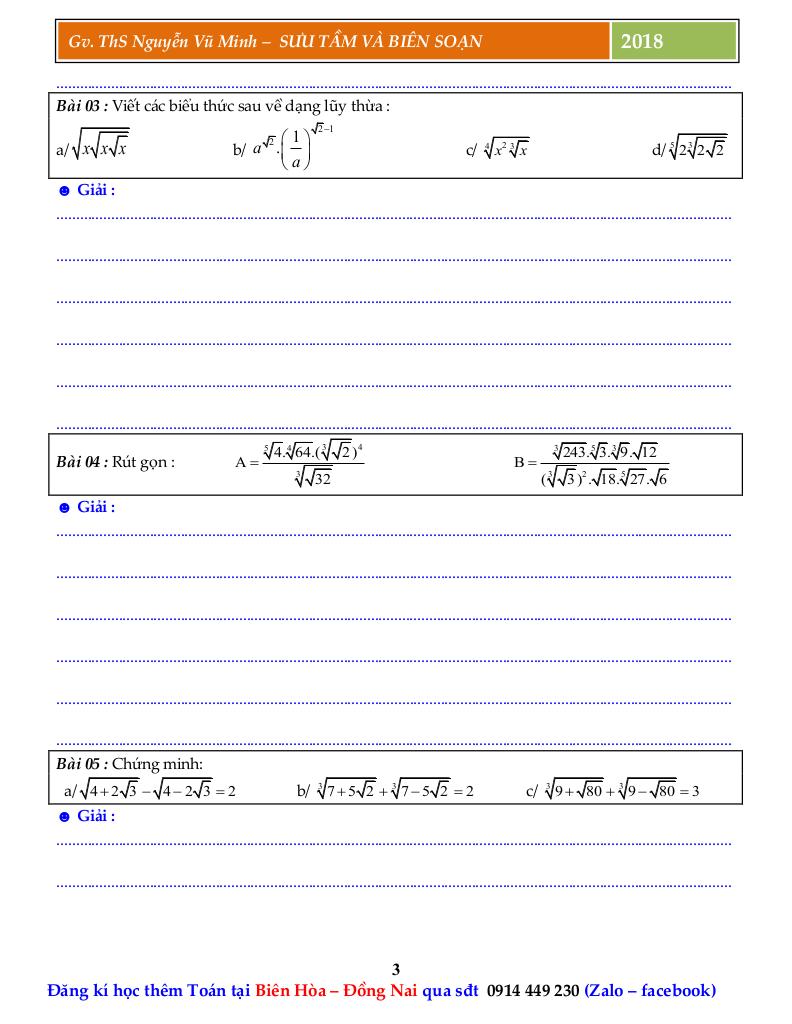 Gv. ThS Nguyễn Vũ Minh – SƯU TẦM VÀ BIÊN SOẠN 2018
Bài 03 : Viết các biểu thức sau về dạng lũy thừa :
a/ √(x√(x√x)) b/ a^√2.(1/a)^(√2−1) c/ ⁴√(x²∛x) d/ ⁵√(2∛(2√2))
☻ Giải :
Bài 04 : Rút gọn : A = (⁵√4.⁴√64.(∛√2)⁴)/(∛√32) B = (∛243.⁵√3.∛9.√12)/((∛√3)².√18.⁵√27.√6)
☻ Giải :
Bài 05 : Chứng minh:
a/ √(4+2√3) − √(4−2√3) = 2 b/ ∛(7+5√2) + ∛(7−5√2) = 2 c/ ∛(9+√80) + ∛(9−√80) = 3
☻ Giải :
3
Đăng kí học thêm Toán tại Biên Hòa – Đồng Nai qua sđt 0914 449 230 (Zalo – facebook)